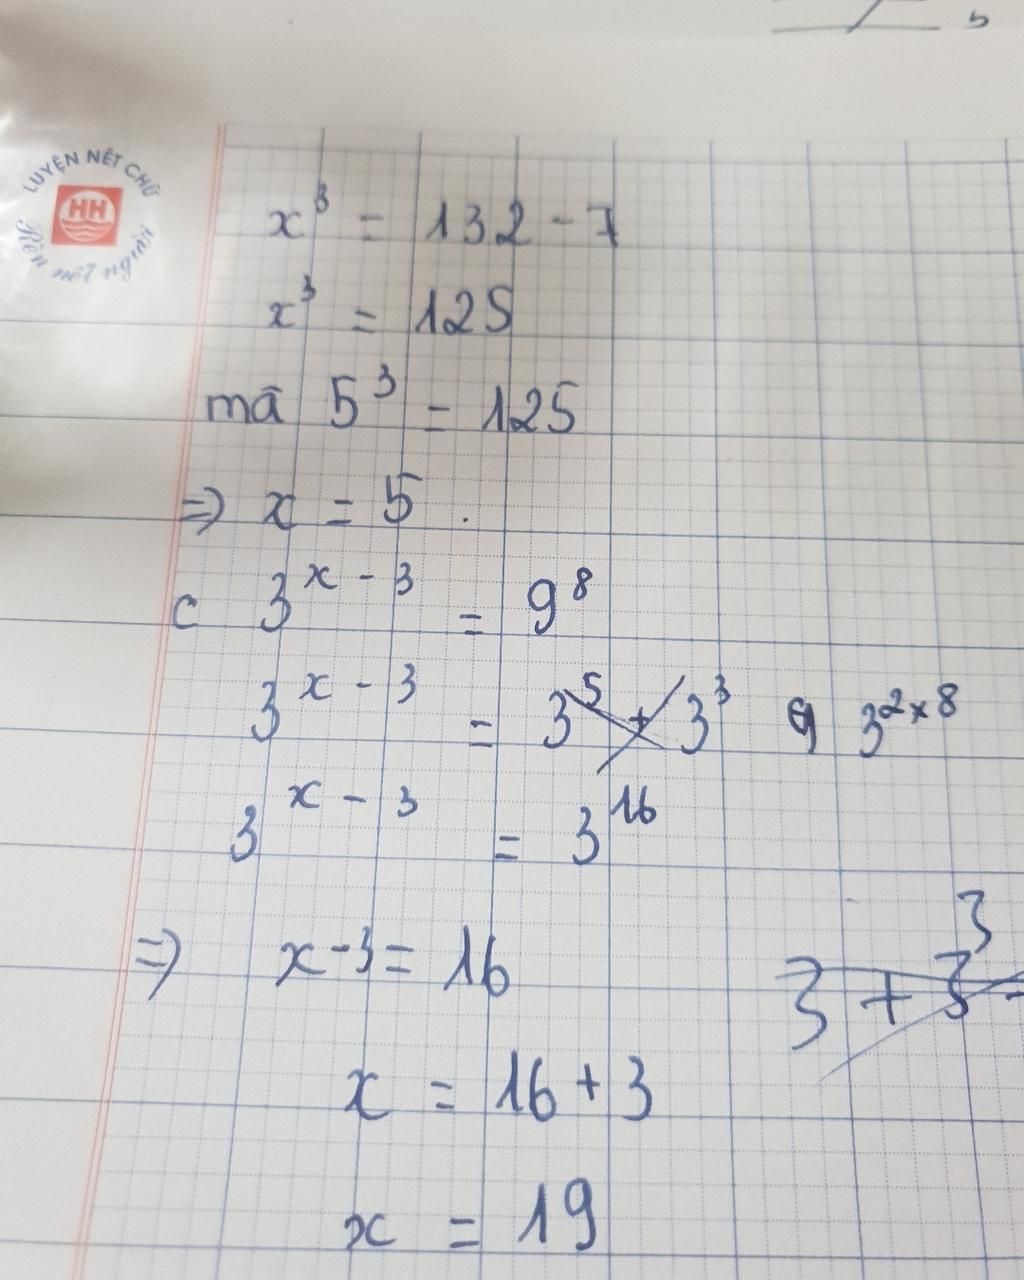 5
LUYỆN NẾT CHỮ
HH
Rèn nết người
x³ = 132 - 7
x³ = 125
mà 5³ = 125
=> x = 5.
c 3^{x - 3} = 9⁸
3^{x - 3} = 3⁵ + 3³ 3^{2 x 8}
3^{x - 3} = 3^{16}
=> x - 3 = 16
3 + 3³
x = 16 + 3
x = 19